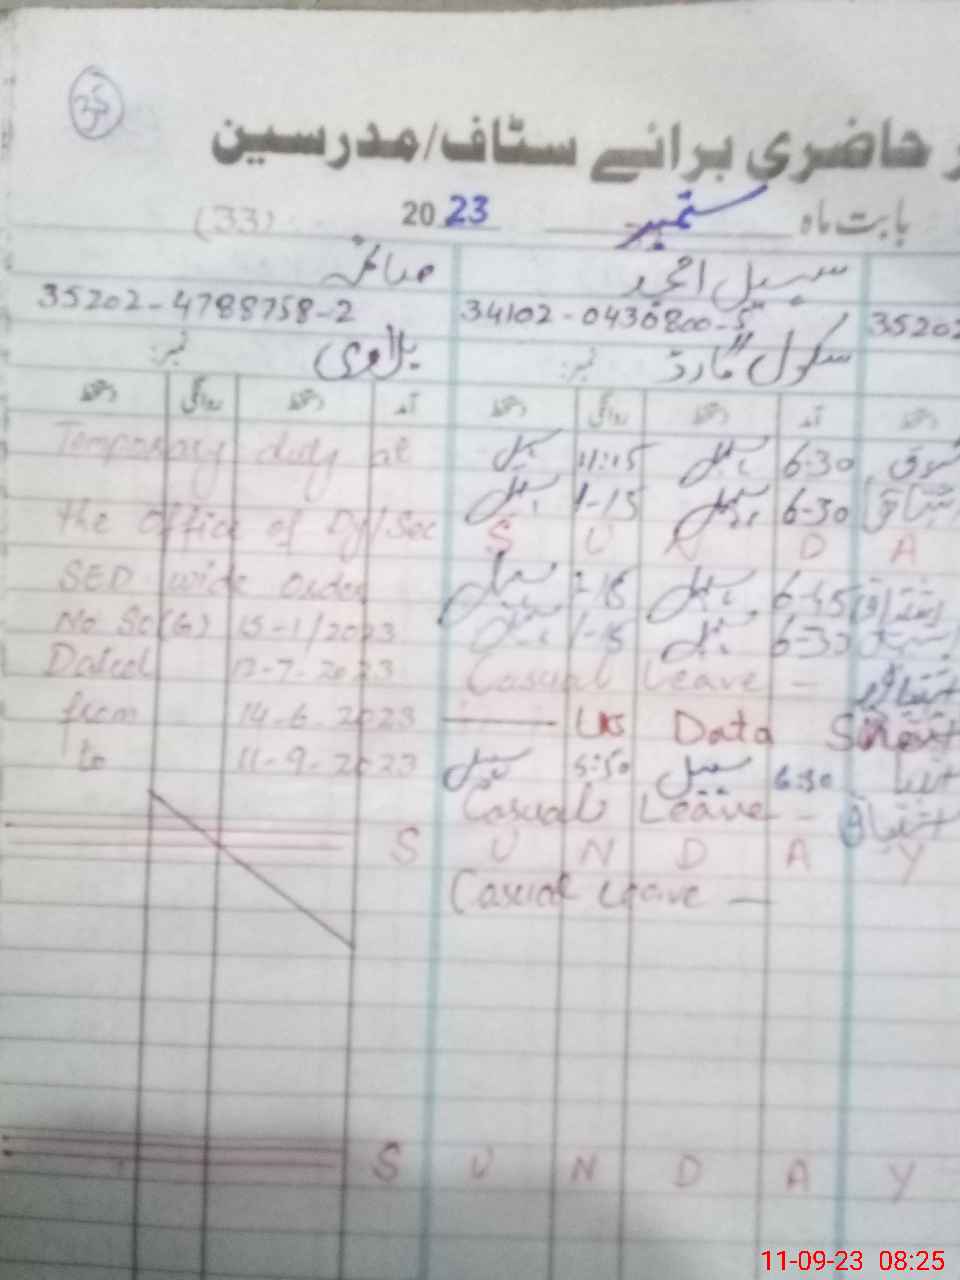 25
حاضری برائے سٹاف/مدرسین
بابت ماہ ستمبر 2023 (33)
سہیل امجد صائمہ
35202 34102-0430800-5 35202-4788758-2
سکول گارڈ نمبر: بلاوی نمبر:
آمد دستخط روانگی دستخط آمد دستخط روانگی دستخط
6-30 سہیل 11:15 سہیل Temporary duty at
6-30 سہیل 1-15 سہیل
the office of Dy/Sec S U N D A
6-45 سہیل 1-15 سہیل SED wide order
6-30 سہیل 1-15 سہیل No So(G) 15-1/2023
Dated 12-7-2023 Casual Leave -
from 14-6-2023 Data
to 11-9-2023 سہیل 5:50 سہیل 6:30
Casual Leave -
S U N D A Y
Casual Leave -
S U N D A Y
11-09-23 08:25